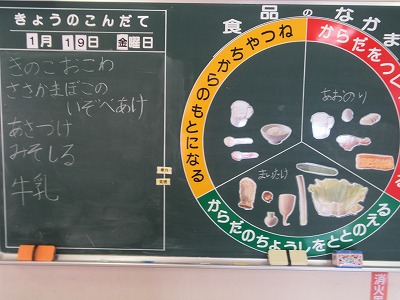 きょうのこんだて
1月19日 金曜日
きのこおこわ
ささかまぼこの
いそべあげ
あさづけ
みそしる
牛乳
食品のなかま
ちからやねつ
のもとになる
からだをつくる
からだのちょうしをととのえる
あおのり
まいたけ
消火